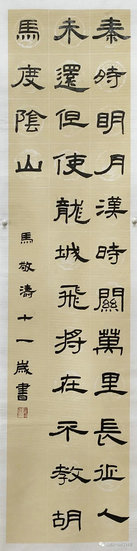 秦時明月漢時關萬里長征人
未還但使龍城飛將在不教胡
馬度陰山
馬敬濤十一歲書